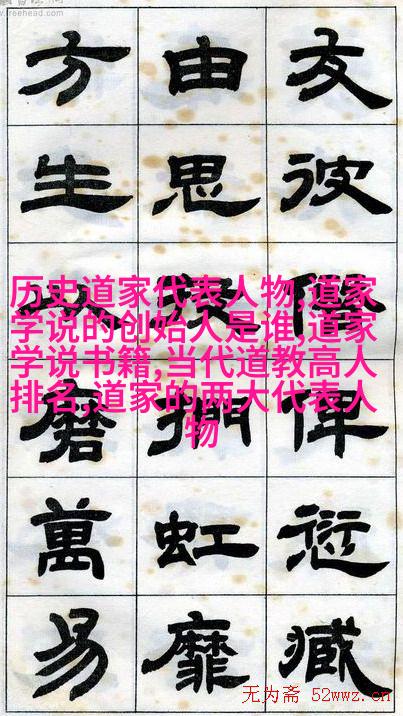 www.freehead.com
方 由 友
生 思 彼
历史道家代表人物,道家
学说的创始人是谁,道家
学说书籍,当代道教高人
排名,道家的两大代表人
物
磨 捫 俾
萬 虹 愆
易 靡 臧
无为斋 52wwz.cn